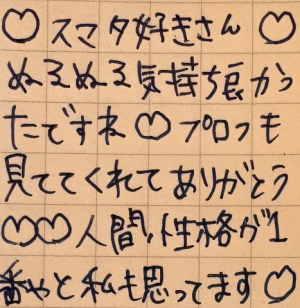 ♡ スマタ好きさん ♡
ぬるぬる気持ち良かっ
たですね♡プロフも
見ててくれてありがとう
♡♡人間、性格が1
番やと私も思ってます♡